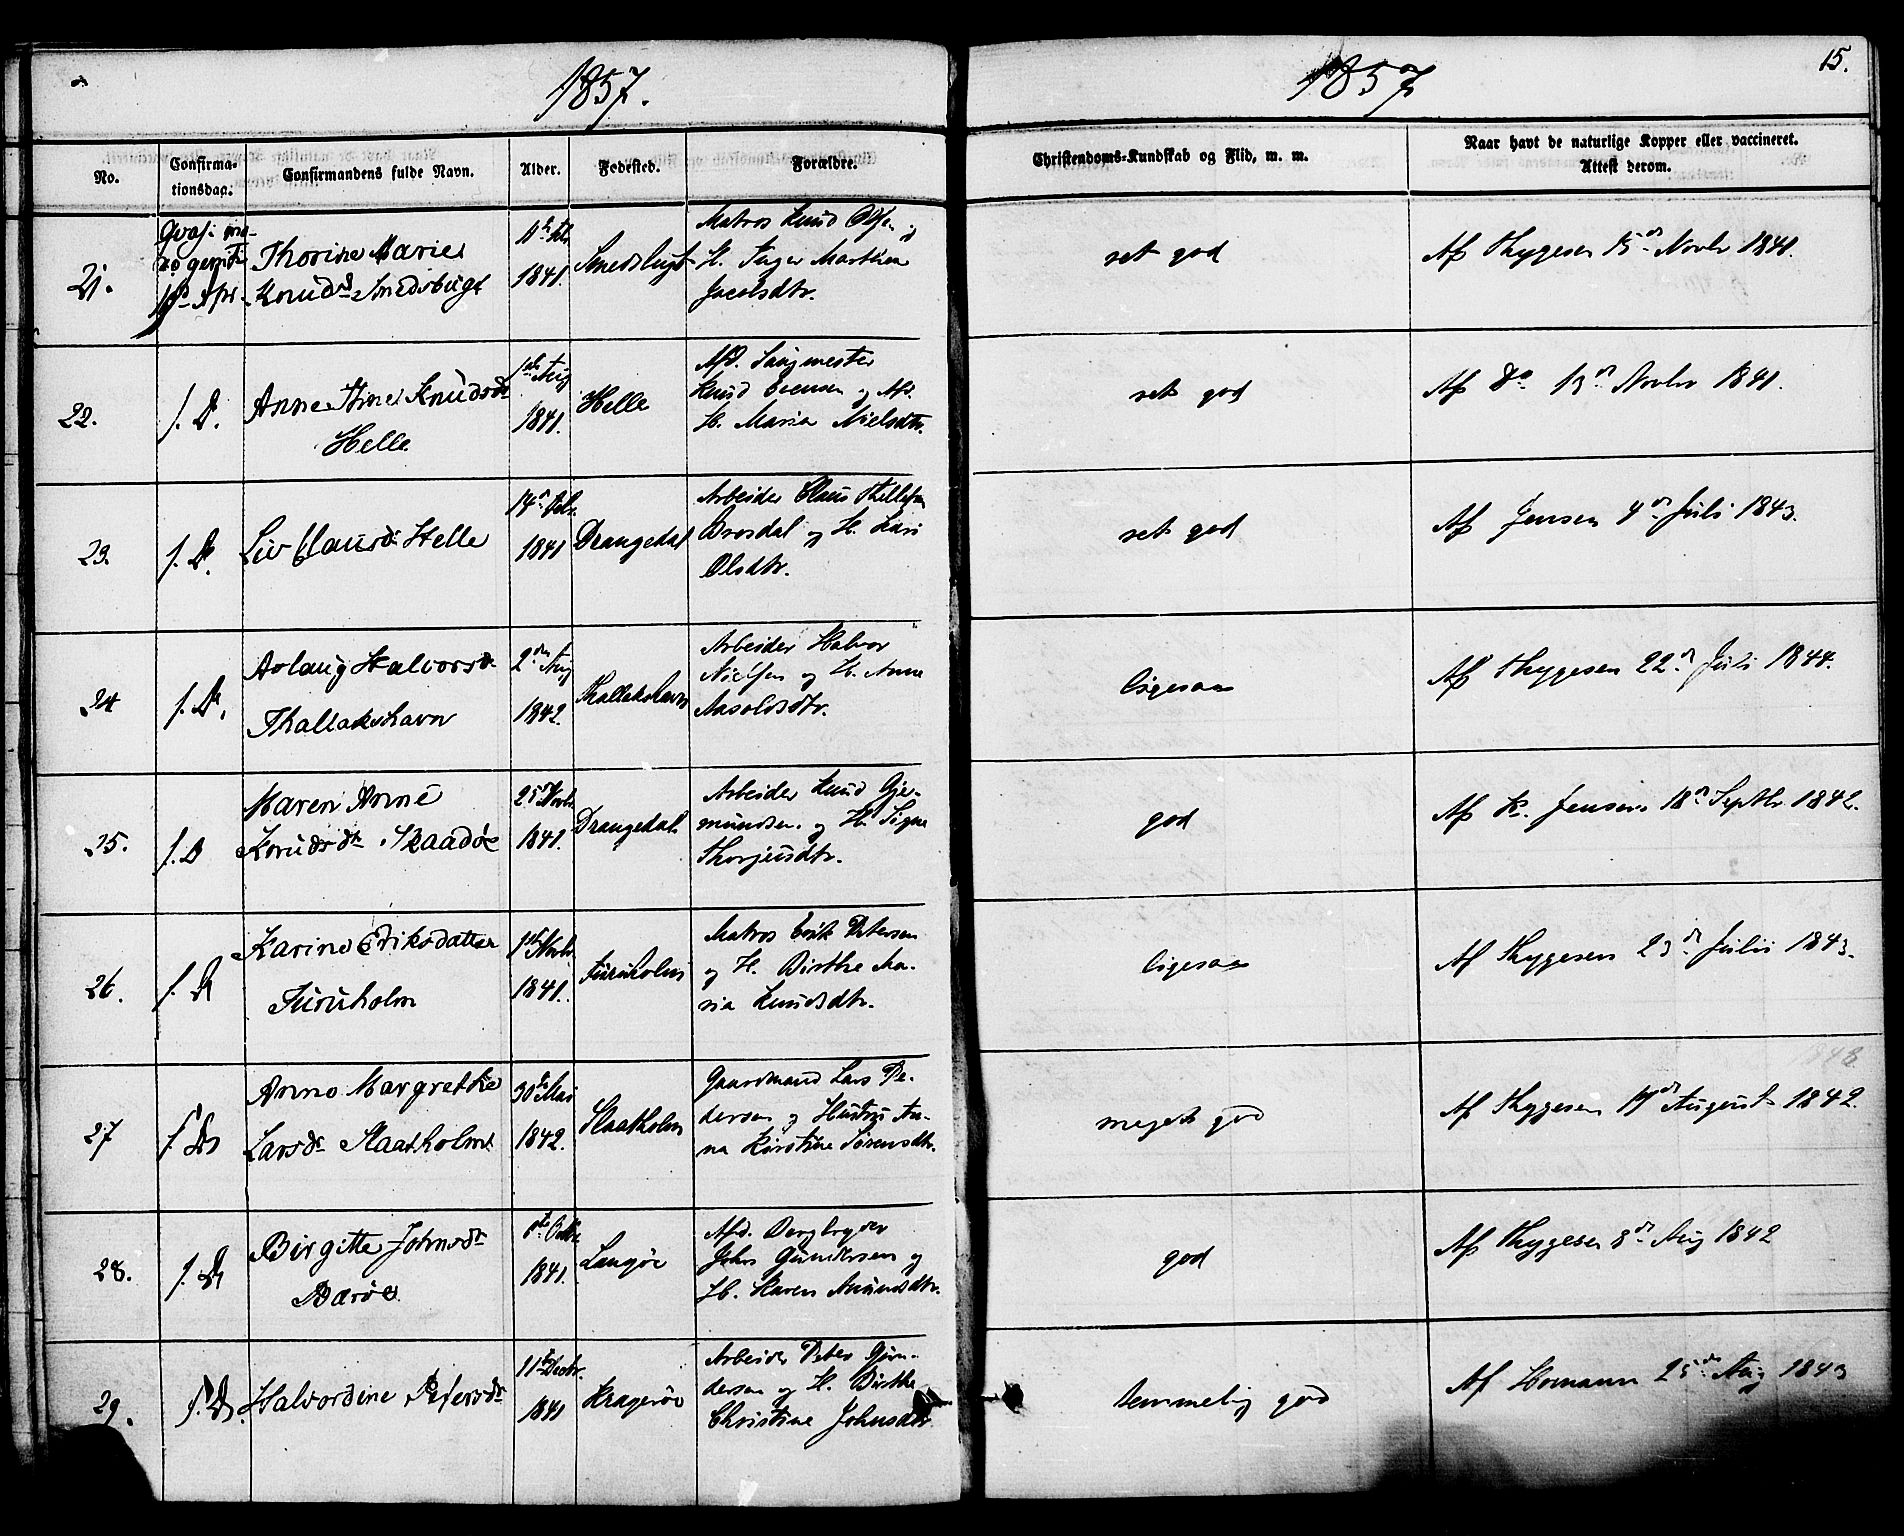 1857.
1857
15.
No.
Confirma-
tionsdag.
Confirmandens fulde Navn.
Alder.
Fødested.
Forældre.
Christendoms-Kundskab og Flid, m. m.
Naar havt de naturlige Kopper eller vaccineret.
Attest derom.
21.
Thorine Marie
Knudsd Smedsbugt
1841.
Smedsbugt
Matros Knud
H. Inger Marthea
Jacobsdtr.
ret god
Af Thygesen 15de Novbr 1841.
22.
f. D.
Anne Knudsdt
Helle
1ste Aug
1841.
Helle
Afd. Saugmester
Knud Evensen og Afd.
H. Maria Nielsdtr.
ret god
Af Do 13de Novbr 1841.
23.
f. D.
Liv Clausdt Helle
14de
1841
Drangedal
Arbeider Claus Thellefsen
og H. Kari
Olsdtr.
ret god
Af Jensen 4de Juli 1843.
24
f. D.
Aslaug Halvorsdt
Thallakshavn
2den Aug
1842.
Thallakshavn
Arbeider Halvor
Nielsen og H. Anne
Aasoldsdtr.
ligesaa
Af Thygesen 22de Juli 1844.
25.
f. D
Maren Anne
Knudsdtr Skaadøe
25 Novb
1841.
Drangedal.
Arbeider Knud Gje-
mundsen og H. Signe
Thorjusdtr.
god
Af K. Jensen 18de Septbr 1842.
26.
f. D
Karine Eriksdatter
Furuholm
1ste Novbr
1841.
Furuholm
Matros Erik Petersen
og H. Birthe Ma-
ria Knudsdtr.
ligesaa
Af Thygesen 23de Juli 1843.
27
f. D
Anne Margrethe
Larsdt Slaatholm
30te Mai
1842.
Slaatholm
Gaardmand Lars Pe-
dersen og Hustru An-
na Kirstine Sørensdtr.
meget god
Af Thygesen August 1842.
28.
f. D
Birgitte Johnsdtr
Barøe
1841.
Langøe
Afd.
John Gundersen og
H. Karen Amundsdtr.
god
Af Thygesen 8de Aug 1842
29.
f. D.
Halvordine Petersdt
11te Decbr.
1841
Kragerøe
Arbeider Peter Gun-
dersen og H. Birthe
Christine Johnsdtr
temmelig god
Af Homann 25de Aug 1843